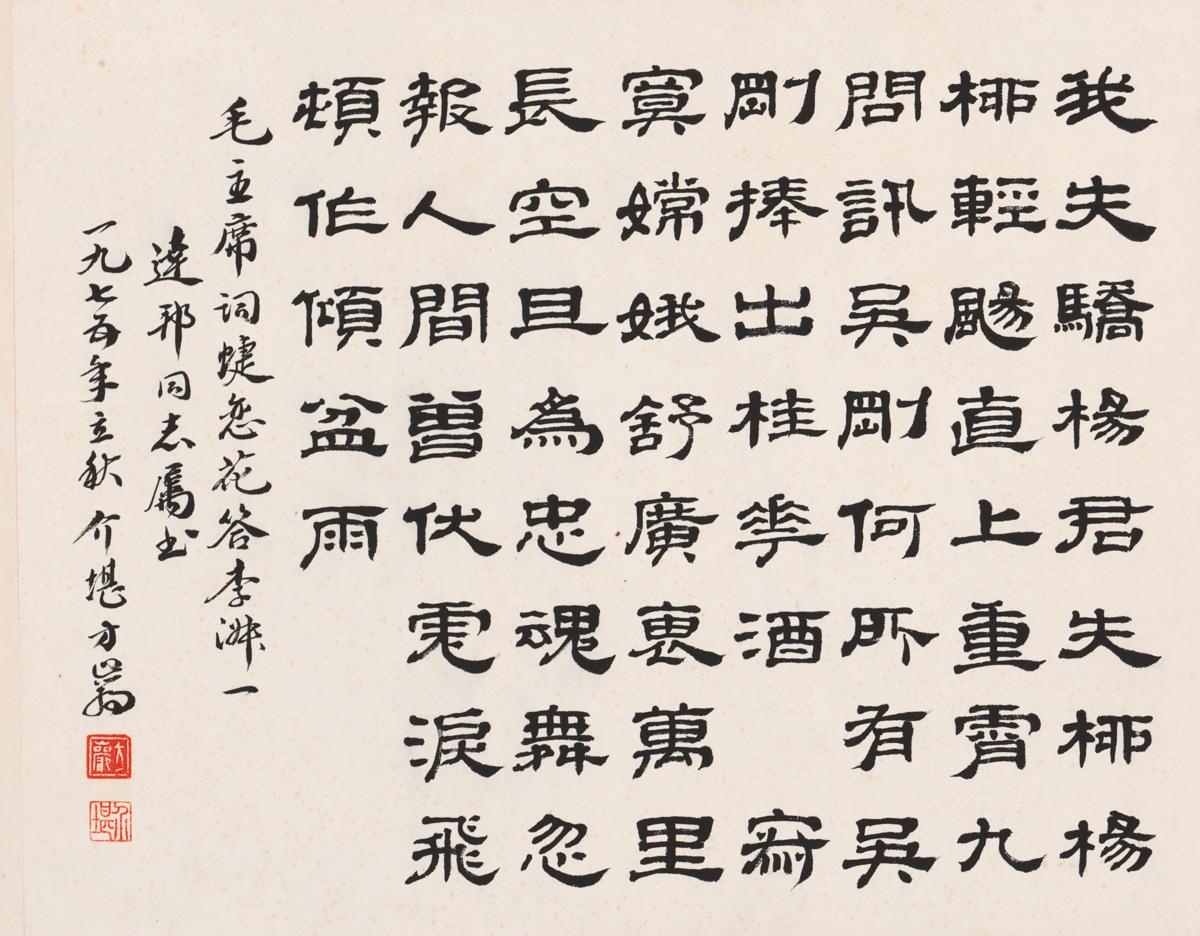 我失驕楊君失桺楊
桺輕颺直上重霄九
問訊吳剛何所有吳
剛捧出桂花酒 寂
寞嫦娥舒廣褎萬里
長空且為忠魂舞忽
報人間曾伏虎淚飛
頓作傾盆雨
毛主席詞蜨恋花答李淑一
達邦同志屬书
一九七五年立秋介堪方
方巖
介堪